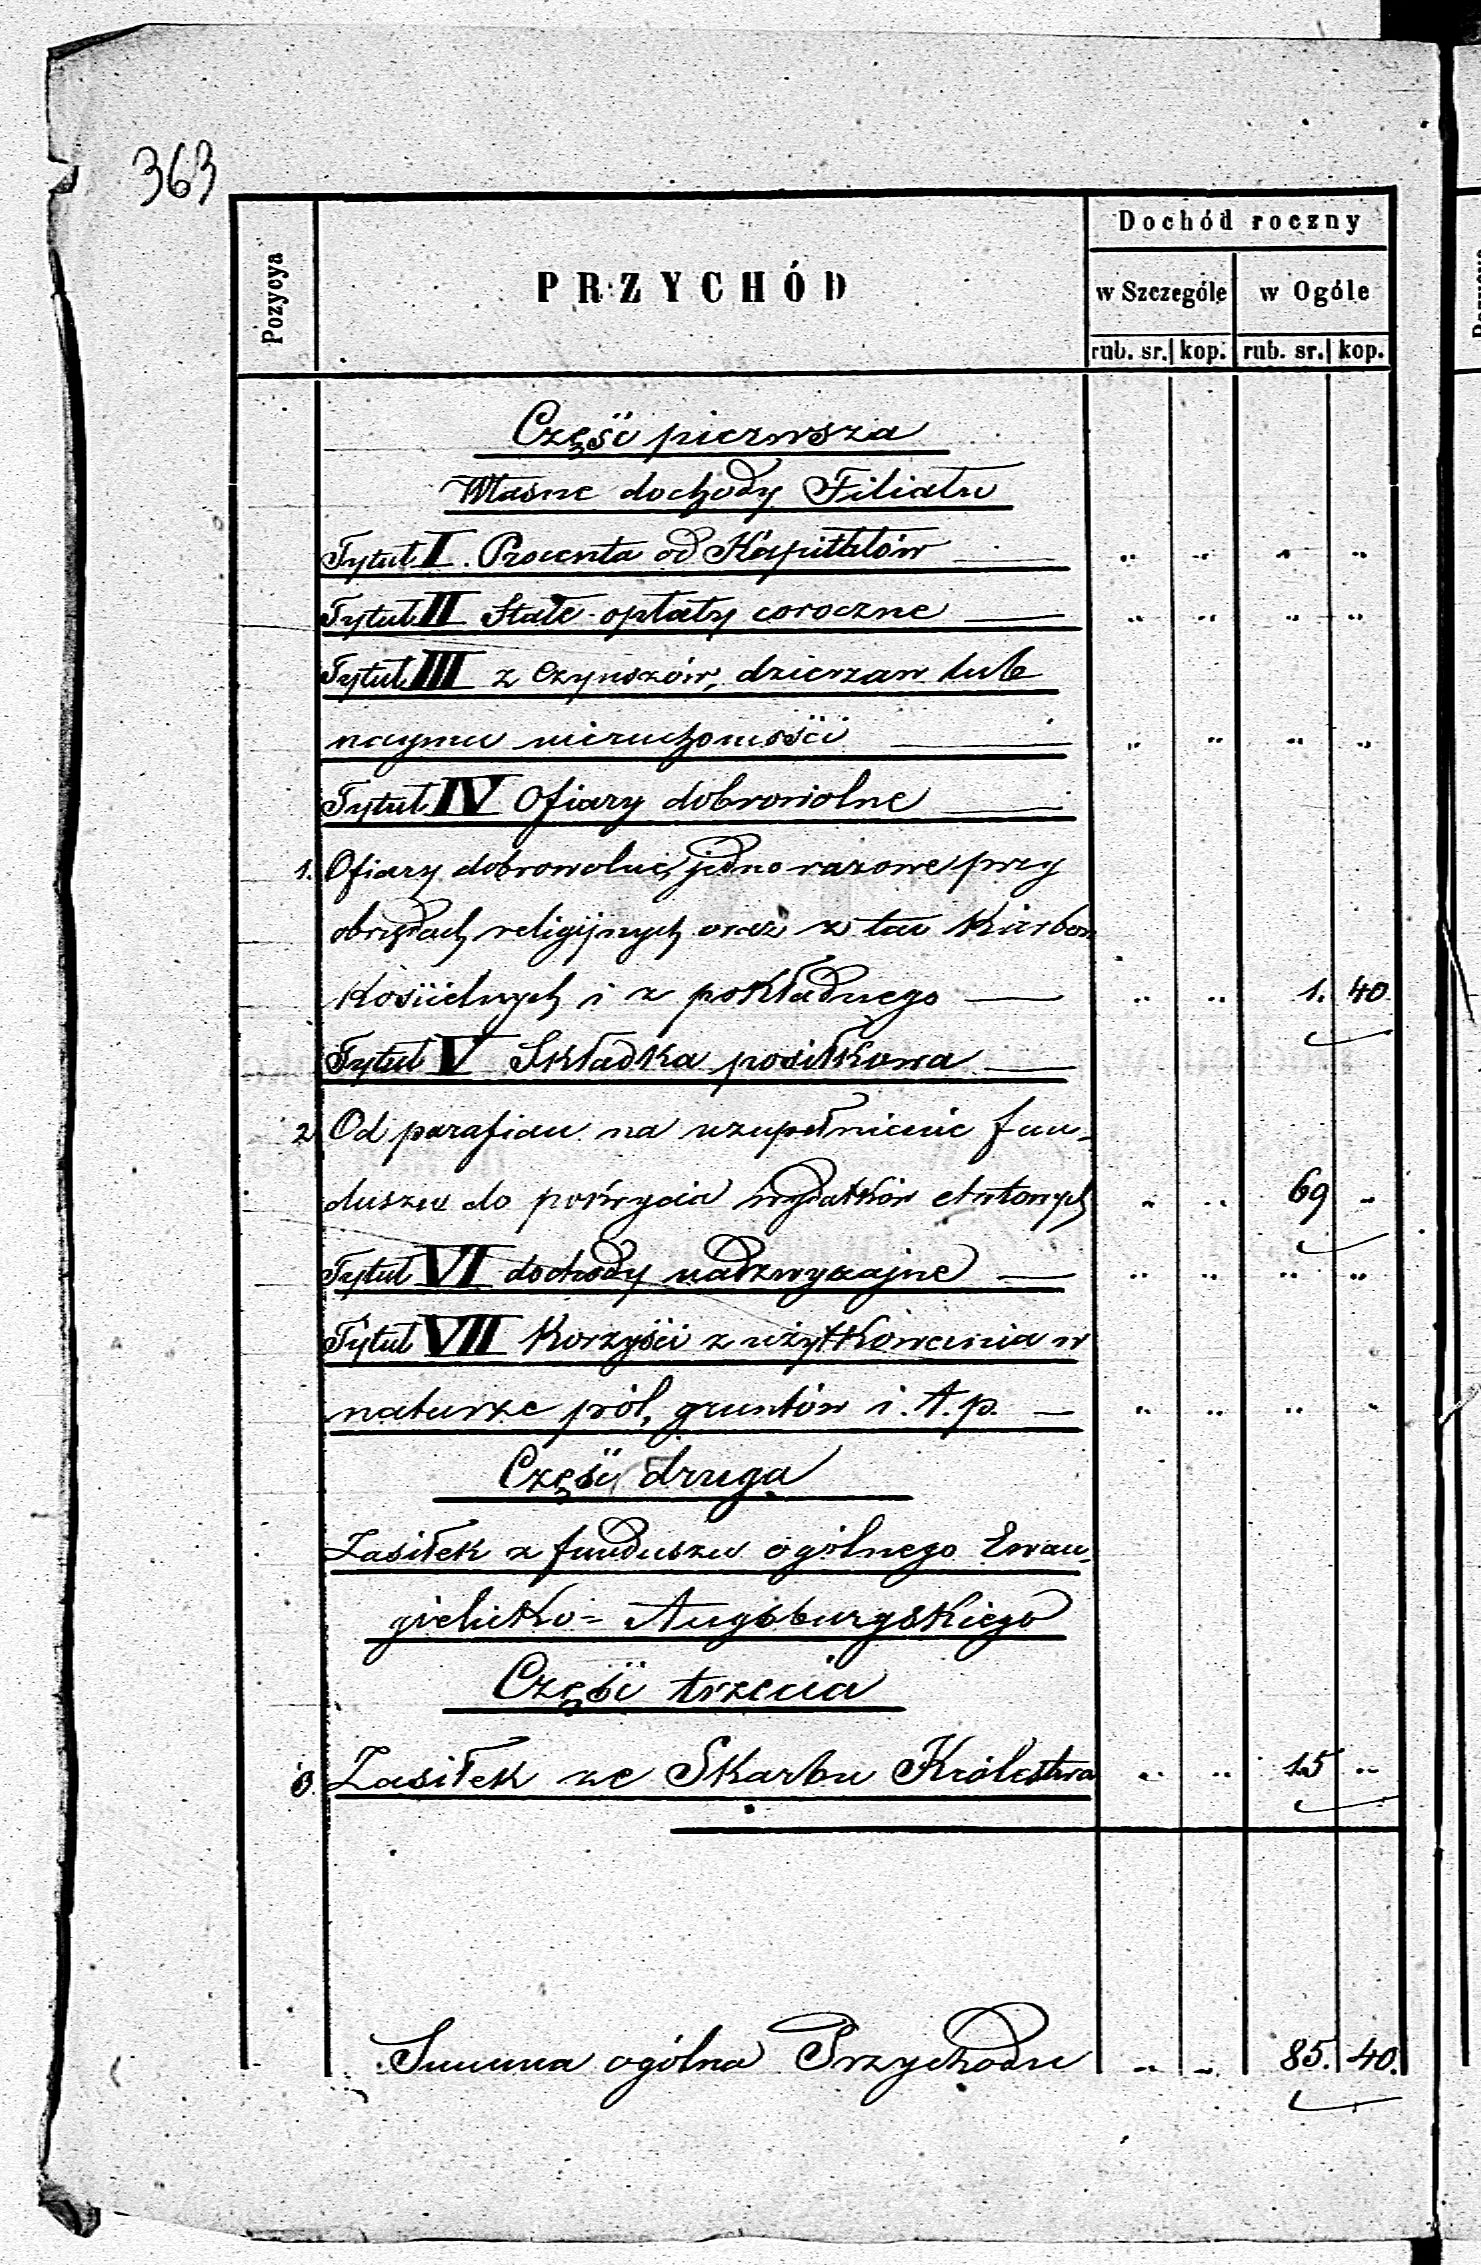 363
Dochód roczny
Pozycya
PRZYCHÓD
w Szczególe
w Ogóle
rub. sr. kop. rub. sr. kop.
Część pierwsza
Własne dochody Filiału
Tytuł I. Procenta od Kapitałów „ „ „ „
Tytuł II Stałe opłaty coroczne „ „ „ „
Tytuł III z Czynszów, dzierzaw lub
naymu nieruchomości „ „ „ „
Tytuł IV Ofiary dobrowolne
1. Ofiary dobrowolne, jedno razowe przy
obrzędach religijnych oraz z Karbon
Kościelnych i z pokładnego „ „ 1. 40
Tytuł V Składka posiłkowa
2 Od parafian na uzupełnienie fun-
duszu do pokrycia wydatków etatowych „ „ 69 „
Tytuł VI dochody nadzwyczajne „ „ „ „
Tytuł VII Korzyści z użytkowania w
naturze pól, gruntów i. t. p. „ „ „ „
Część druga
Zasiłek z funduszu ogólnego Ewan-
gielicko- Augsburgskiego
Część trzecia
3. Zasiłek ze Skarbu Królestwa „ „ 15 „
Summa ogólna Przychodu „ „ 85. 40.